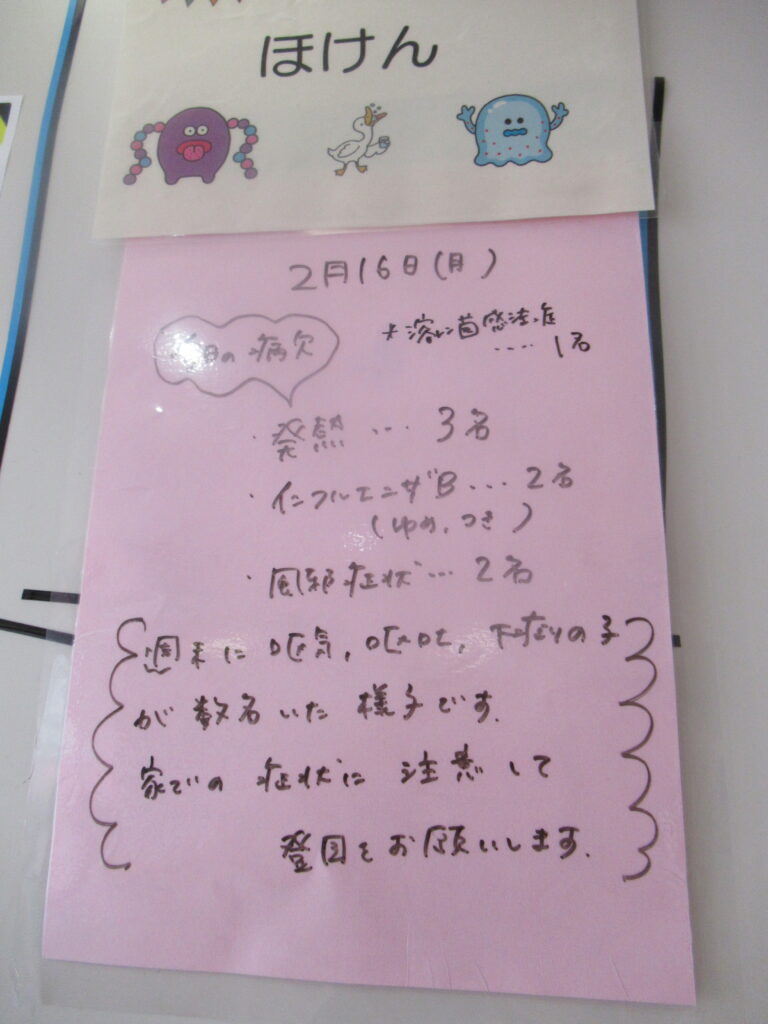 ほけん
2月16日(月)
*溶レン菌感染症
‥‥ 1名
日の病欠
・発熱 … 3名
・インフルエンザB … 2名
(ゆめ、つき)
・風邪症状 … 2名
週末に嘔気、嘔吐、下痢の子
が数名いた様子です。
家での症状に注意して
登園をお願いします。